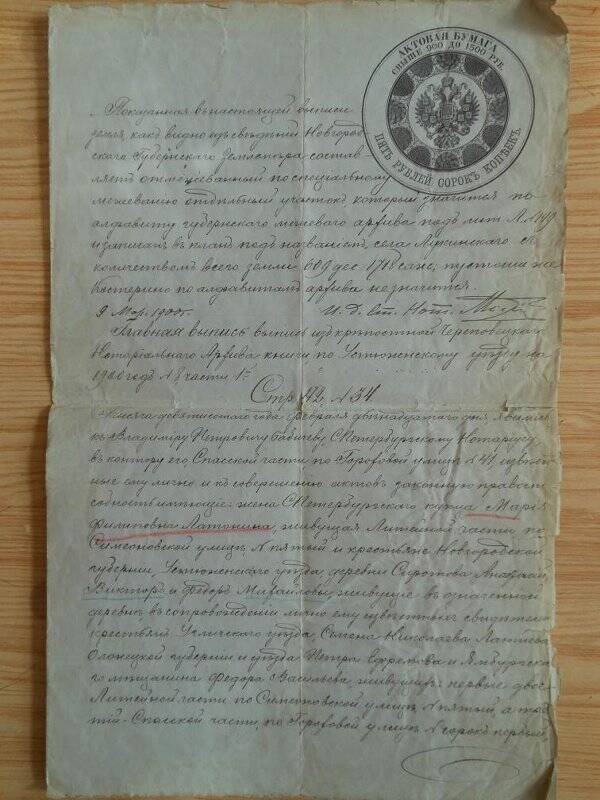 АКТОВАЯ БУМАГА
СВЫШЕ 900 ДО 1500 РУБ.
ПЯТЬ РУБЛЕЙ СОРОКЪ КОПѢЕКЪ
Показанная въ настоящей выписи
земля, какъ видно изъ свѣдѣній Новгород-
скаго Губернскаго Землемѣра состав-
ляетъ отмежеванный по специальному
межеванію отдѣльный участокъ который значится по
алфавиту губернскаго межевого архива подъ лит. Л. №
и записанъ въ планѣ подъ названіемъ села съ
количествомъ всего земли 609 дес. саж.; пустошь
по алфавитамъ архива не значится.
9 Мар. 1900 г. И. Д. Ст. Нот.
Главная выпись выпись изъ крѣпостной Череповецкаго
Нотаріальнаго Архива книги по Устюженскому уѣзду на
1900 годъ № части 1й
Стр. № 34
Тысяча девятисотаго года Февраля двѣнадцатаго дня явились
къ Владиміру Петровичу С.Петербургскому Нотаріусу,
въ контору его Спасской части по Гороховой улицѣ № 41 извѣст-
ные ему лично и къ совершенію актовъ законную правоспо-
собность имѣющіе: жена С.Петербургскаго купца Марія
Филиповна Латонина, живущая Литейной части по
Симеоновской улицѣ № пятый и крестьяне Новгородской
губерніи, Устюженскаго уѣзда деревни
Викторъ и Федоръ Михайловы живущіе въ означенной
деревнѣ въ сопровожденіи лично ему извѣстныхъ свидѣтелей
крестьянъ Угличскаго уѣзда, Семена Николаева
Олонецкой губерніи и уѣзда Петра Ефремова и Ямбургскаго
мѣщанина Федора Васильева, живущихъ: первые двое
Литейной части по Симеоновской улицѣ № пятый, а тре-
тій - Спасской части, по Гороховой улицѣ № сорокъ первый,